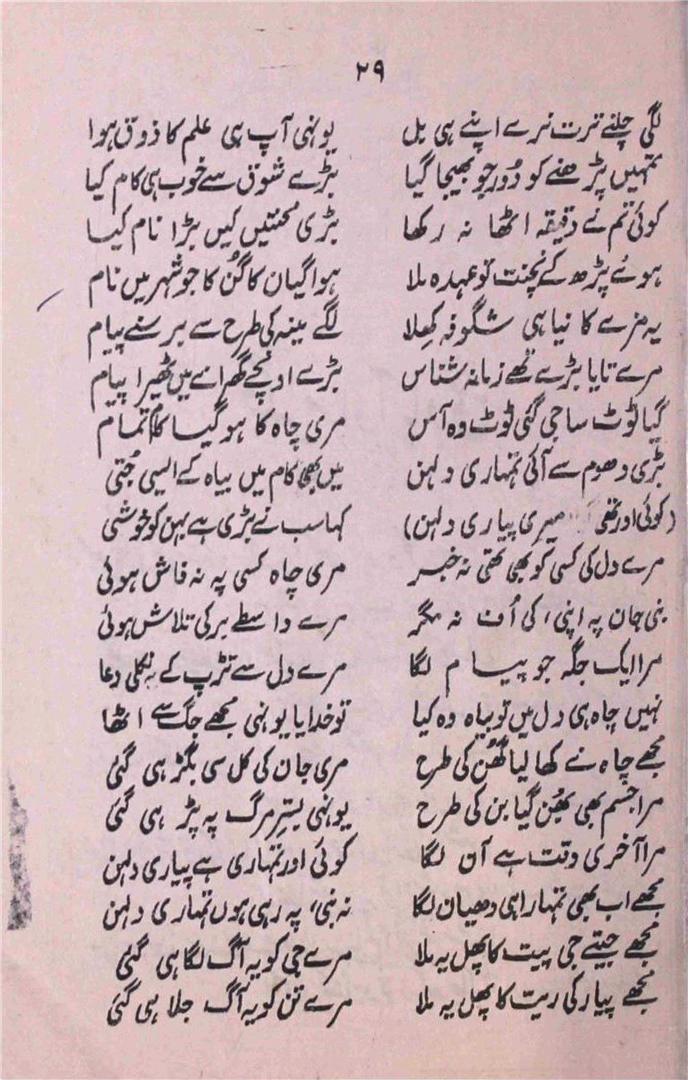 ۲۹
لگی چلنے ترت نرے اپنے ہی بل یونہی آپ ہی علم کا ذوق ہوا
تمہیں پڑھنے کو دُور جو بھیجا گیا بڑے شوق سے خوب ہی کام کیا
کوئی تم نے دقیقہ اٹھا نہ رکھا بڑی محنتیں کیں بڑا نام کیا
ہوئے پڑھ کے نچنت تو عہدہ ملا ہوا گیان کا گُن کا جو شہر میں نام
یہ مزے کا نیا ہی شگوفہ کھلا لگے مینہ کی طرح سے برسنے پیام
مرے تایا بڑے تھے زمانہ شناس بڑے اونچے گھرانے میں ٹھیرا پیام
گیا ٹوٹ سا جی گئی ٹوٹ وہ آس مری چاہ کا ہو گیا کام تمام
بڑی دھوم سے آئی تمہاری دلہن میں بھی کام میں بیاہ کے ایسی جُتی
(کوئی اور تھی میری پیاری دلہن) کہا سب نے بڑی ہے بہن کو خوشی
مرے دل کی کسی کو بھی تھی نہ خبر مری چاہ کسی پہ نہ فاش ہوئی
بنی جان پہ اپنی، کی اُف نہ مگر مرے واسطے بر کی تلاش ہوئی
مرا ایک جگہ جو پیام لگا مرے دل سے تڑپ کے نکلی دعا
نہیں چاہ ہی دل میں تو بیاہ وہ کیا تو خدایا یونہی مجھے جگ سے اٹھا
مجھے چاہ نے کھا لیا گھُن کی طرح مری جان کی کل سی بگڑ ہی گئی
مرا جسم بھی بھُن گیا بن کی طرح یونہی بسترِ مرگ پہ پڑ ہی گئی
مرا آخری وقت ہے آن لگا کوئی اور تمہاری ہے پیاری دلہن
مجھے اب بھی تمہارا ہی دھیان لگا نہ بنی، پہ رہی ہوں تمہاری دلہن
مجھے جیتے جی پیت کا پھل یہ ملا مرے جی کو یہ آگ لگا ہی گئی
مجھے پیار کی ریت کا پھل یہ ملا مرے تن کو یہ آگ جلا ہی گئی